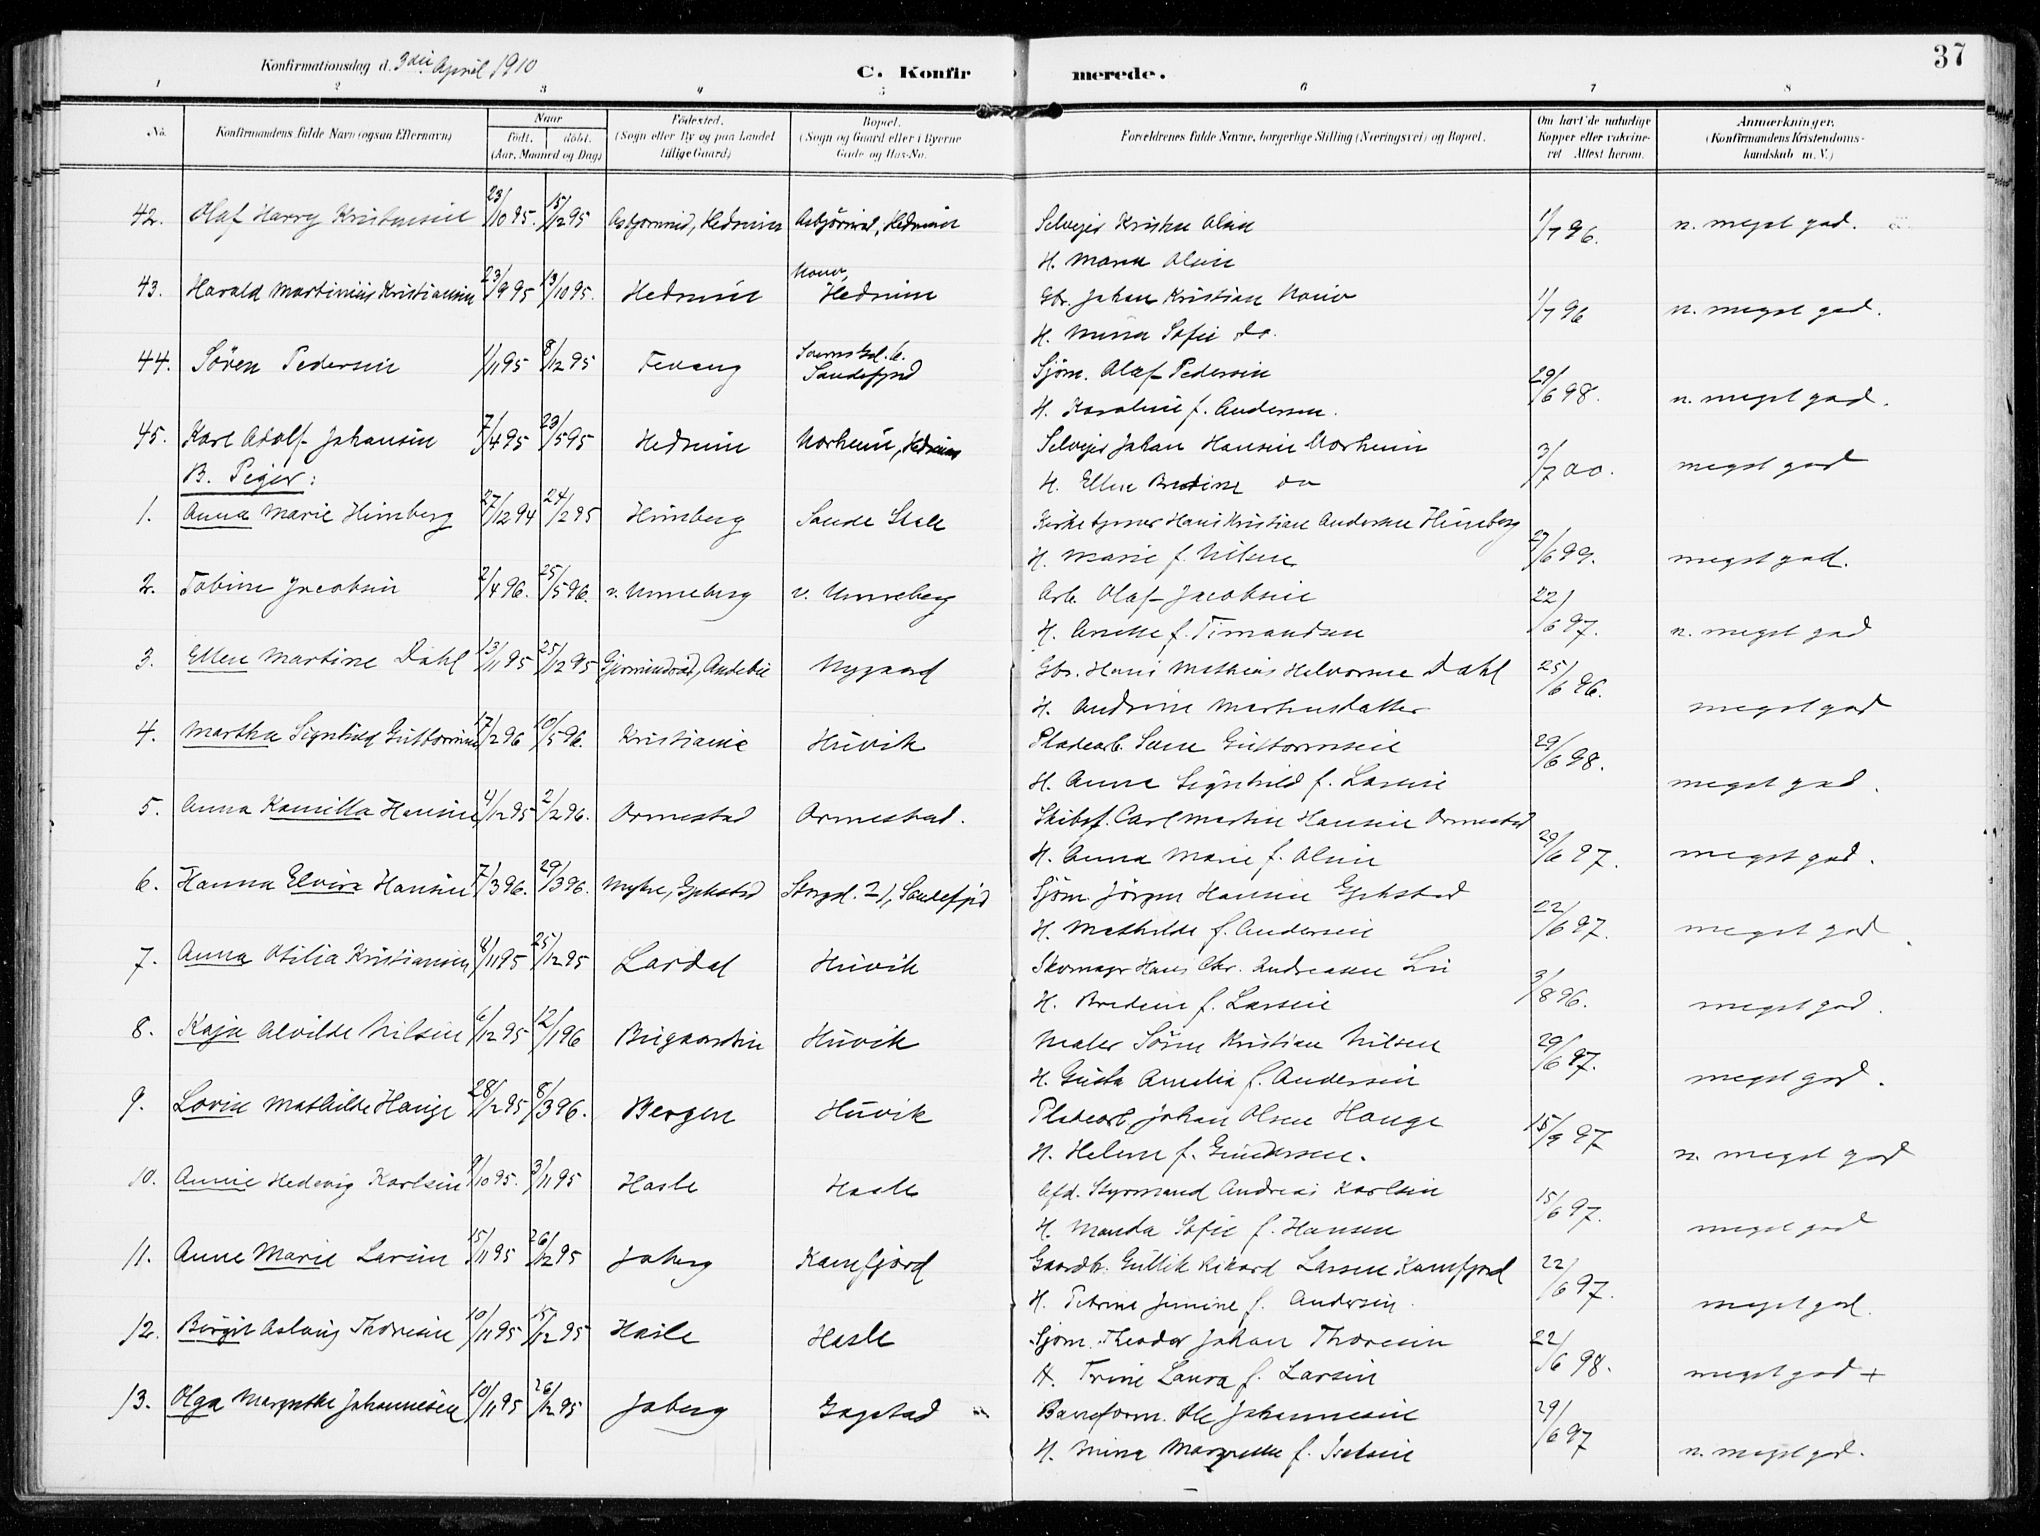 37
Konfirmationsdag d. 3die April 1910
C. Konfirmerede.
1 2 3 4 5 6 7 8
No. Konfirmandens fulde Navn (ogsaa Efternavn) Naar født. døbt. (Aar, Maaned og Dag) Fødested. (Sogn eller By og paa Landet tillige Gaard) Bopæl. (Sogn og Gaard eller i Byerne Gade og Hus-No. Forældrenes fulde Navne, borgerlige Stilling (Næringsvei) og Bopæl. Om havt de naturlige Kopper eller vaccineret. Attest herom. Anmærkninger. (Konfirmandens Kristendomskundskab m. V.)
42. Olaf Harry Kristensen 23/10 95. 15/12 95 Hedrum Hedrum Selveier Kristen Olsen 1/7 96. n. meget god.
H. Maren Olsen
43. Harald Martinius Kristiansen 23/9 95 13/10 95. Hedrum Hedrum Gbr. Johan Kristian 1/7 96 n. meget god.
H. Mina Sofie do.
44. Søren Pedersen 1/11 95 8/12 95 Fevang Sandefjord Sjøm. Olaf Pedersen 29/6 98. n. meget god.
H. Karoline f. Andersen.
45. Karl Adolf Johansen 7/4 95 23/5 95 Hedrum Norheim, Hedrum Selveier Johan Hansen Norheim 3/7 00. meget god
H. Ellen Bredine do
B. Piger:
1. Anna Marie Himberg 27/12 94 24/2 95 Himberg Sande Kirketjener Hans Kristian Andersen Himberg 27/6 99. meget god.
H. Marie f. Nilsen
2. Tobine Jacobsen 2/4 96. 25/5 96. v. Unneberg v. Unneberg Arb. Olaf Jacobsen 22/6 97. n. meget god
H. f.
3. Ellen Martine Dahl 13/11 95 25/12 95 Gjermundrød, Andebu Nygaard Gbr. Hans Mathias Halvorsen Dahl 25/6 96. meget god
H. Andrine Martinsdatter
4. Martha Signhild Guttormsen 17/2 96 10/5 96. Kristiania Huvik Pladearb. Guttormsen 29/6 98. meget god.
H. Anna Signhild f. Larsen
5. Anna Kamilla Hansen 4/12 95 2/2 96. Ormestad Ormestad. Skibsf. Carl Martin Hansen Ormestad 29/6 97. meget god.
H. Anna Marie f. Olsen
6. Hanna Elvira Hansen 7/3 96. 29/3 96. Myhre, Gjekstad Storgd. 21, Sandefjord Sjøm. Jörgen Hansen Gjekstad 22/6 97. meget god.
H. Mathilde f. Andersen
7. Anna Otilia Kristiansen 8/11 95 25/12 95 Lardal Huvik Skomager Hans Chr. Andreasen Lie 3/8 96. meget god.
H. Bredine f. Larsen
8. Kaja Alvilde Nilsen 6/12 95 12/1 96 Bugaarden Huvik Maler Søren Kristian Nilsen 29/6 97. meget god.
H. Gusta Amalia f. Andersen
9. Lovise Mathilde Hauge 28/12 95 8/3 96. Bergen Huvik Pladearb. Johan Olsen Hauge 15/9 97 n. meget god
H. Helene f. Gundersen.
10. Annie Hedevig Karlsen 9/10 95. 3/11 95 Hasle Hasle Afd. Styrmand Andreas Karlsen 15/6 97. meget god
H. Manda Sofie f. Hansen
11. Anne Marie Larsen 15/11 95 26/12 95 Joberg Kamfjord Gaardb. Gullik Rikard Larsen Kamfjord 22/6 97. meget god.
H. Petrine Jensine f. Andersen.
12. Borgit Aslaug Thoresen 10/11 95 15/12 95 Hasle Hasle Sjøm. Theodor Johan Thoresen 22/6 98. meget god +
H. Trine Laura f. Larsen
13. Olga Margrethe Johannesen 10/11 95 26/12 95 Joberg Gogstad Baneform. Ole Johannesen 29/6 97 n. meget god.
H. Mina Margrethe f. Isaksen